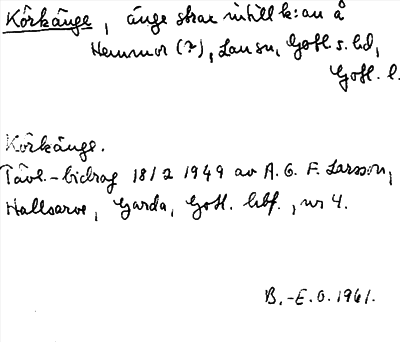 Kôrkänge, änge strax intill k:an å
Hemmor (?), Lau sn, Gotl. s. hd,
Gotl. l.
Kôrkänge.
Tävl.-bidrag 18/2 1949 av A. G. F. Larsson,
Hallsarve, Garda, Gotl. hbf., nr 4.
B.-E. O. 1961.